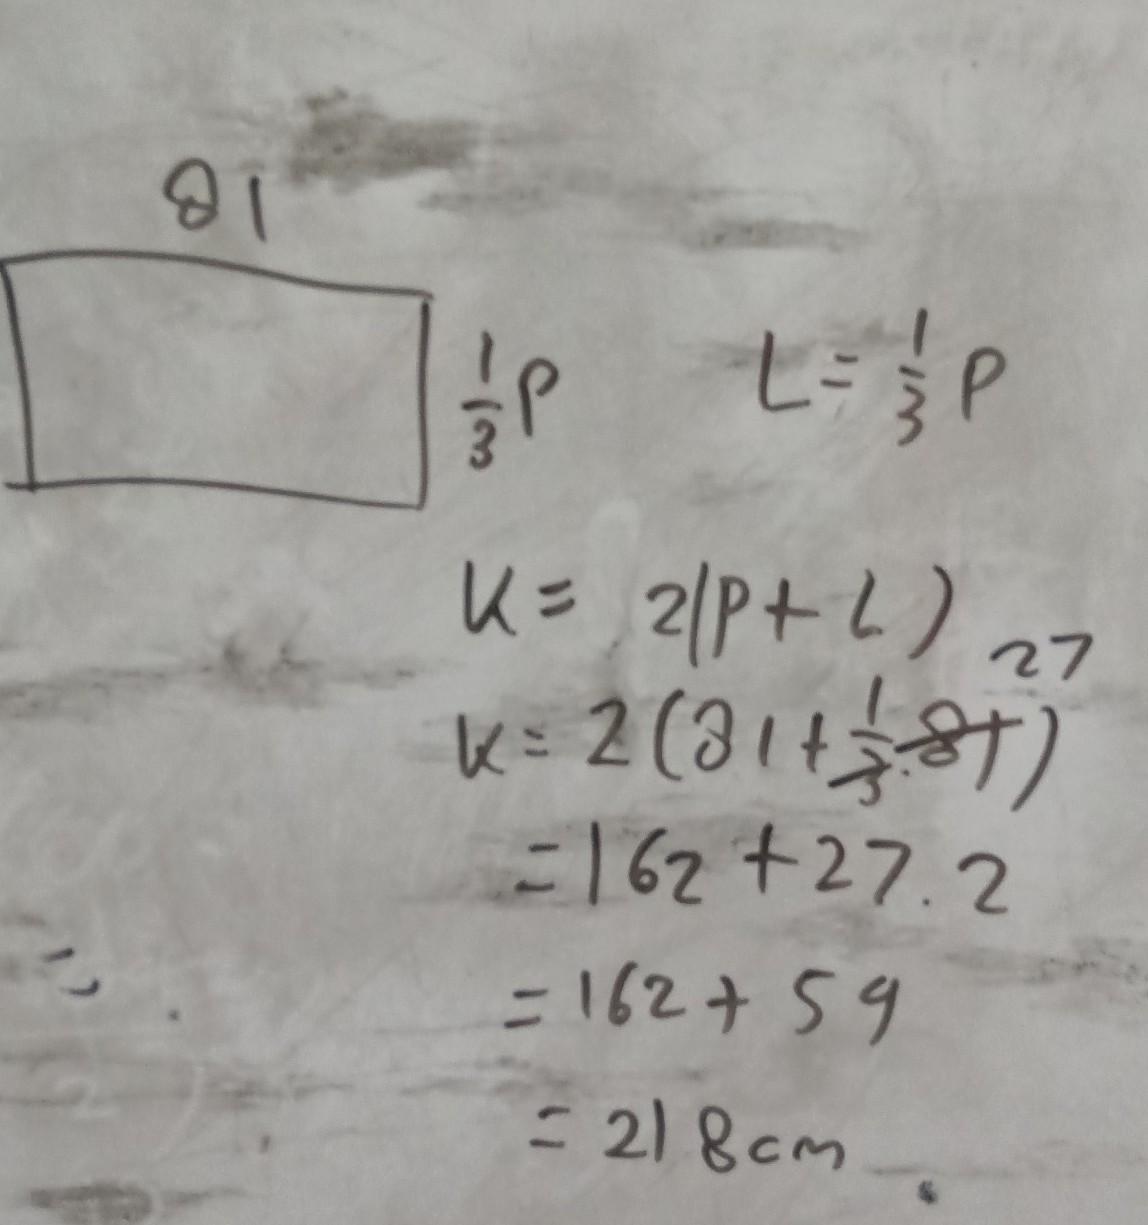 81
1/3 P
L = 1/3 P
K = 2(P + L)
27
K = 2(81 + 1/3.81)
= 162 + 27.2
= 162 + 59
= 218 cm